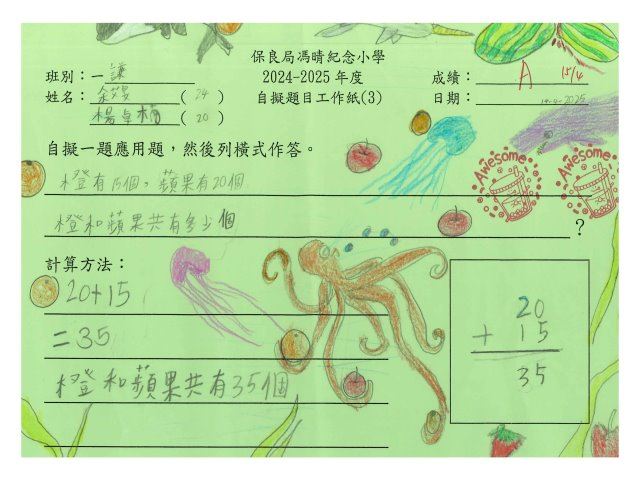 保良局馮晴紀念小學
班別：一謙
2024-2025 年度
成績：A 15/4
姓名： (24)
自擬題目工作紙(3)
日期：14-4-2025
楊卓 (20)
自擬一題應用題，然後列橫式作答。
橙有15個。蘋果有20個
Awesome
Awesome
橙和蘋果共有多少個？
計算方法：
20+15
=35
橙和蘋果共有35個
20
+ 15
35